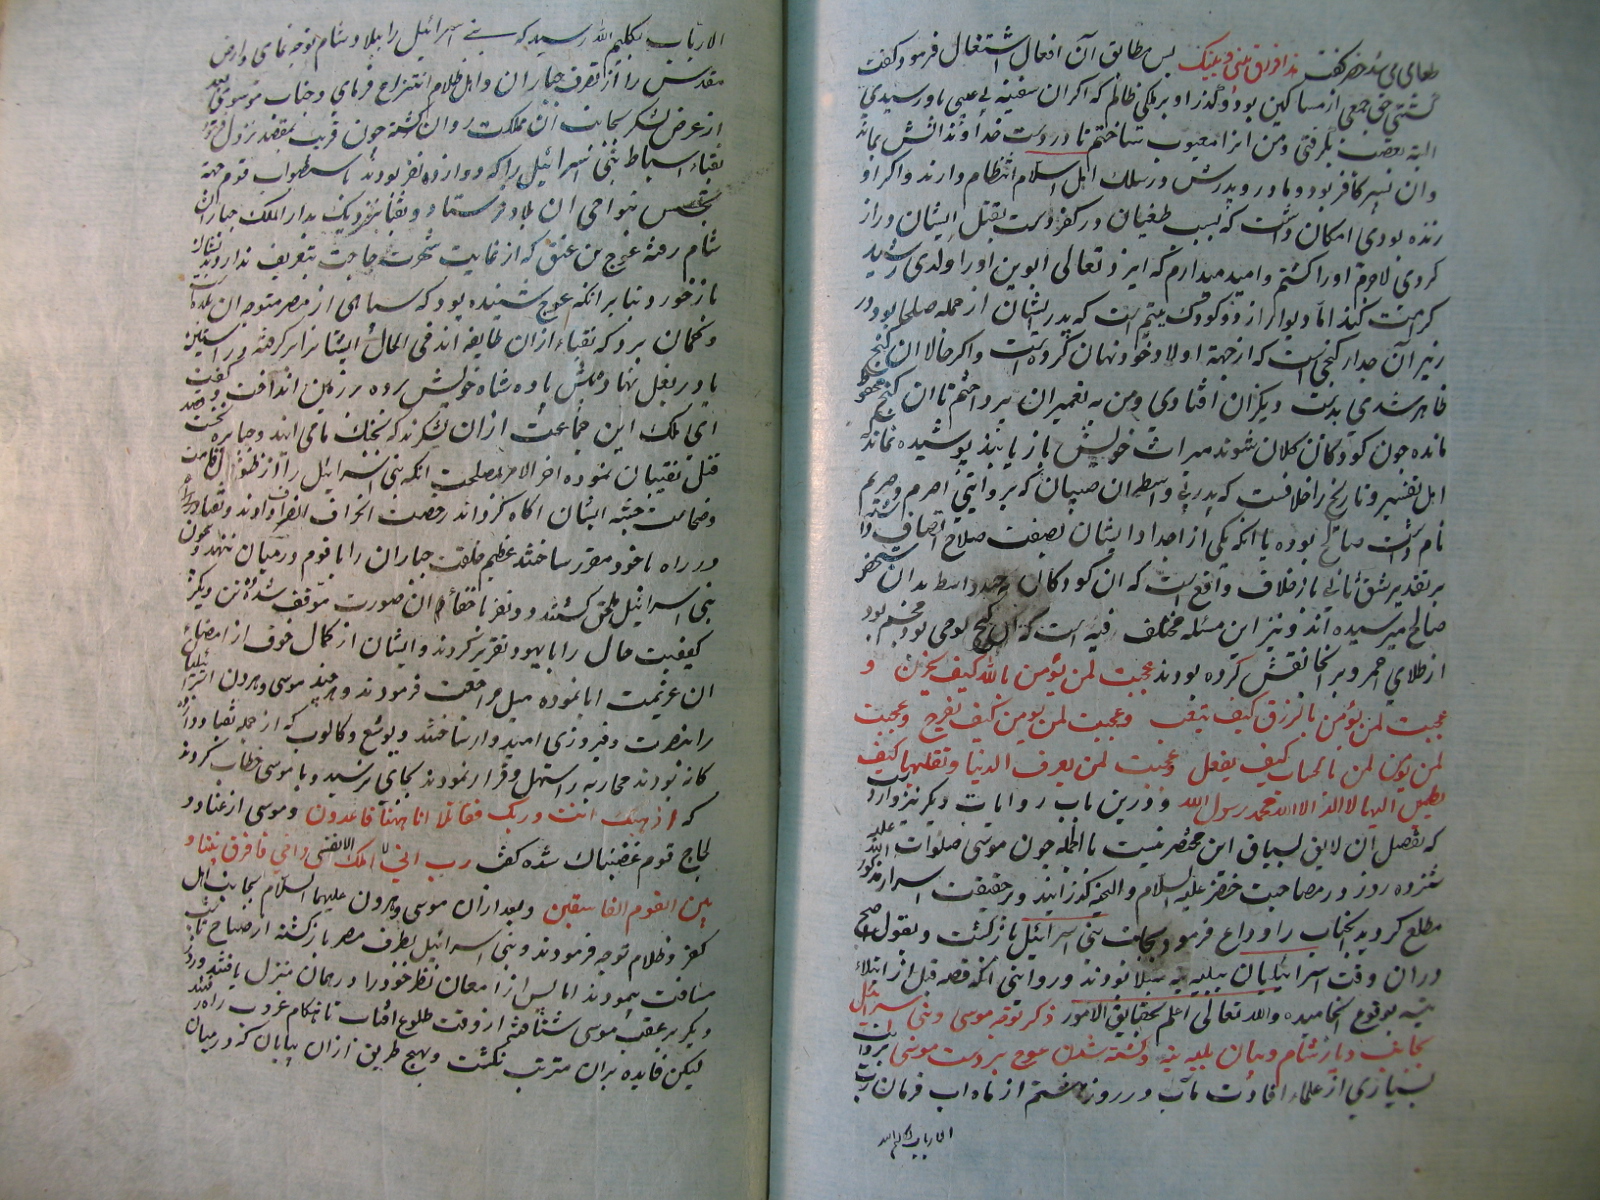 طعامی می شد خضر گفت هذا فراق بینی و بینک پس مطابق آن افعال اشتغال فرمود و گفت
کشتی حق جمعی از مساکین بود و گذر او بر ملکی ظالم که اگر ان سفینه بی عیبی باو رسیدی
البته بغصب بگرفتی و من انرا معیوب ساختم تا در دست خداوندانش بماند
وان پسر کافر بود و مادر و پدرش در سلک اهل اسلام انتظام دارند و اگر او
زنده بودی امکان داشت که بسبب طغیان و کفر دست بقتل ایشان دراز
کردی لاجرم اورا کشتم و امید میدارم که ایزد تعالی ابوین اورا ولدی رشید
کرامت کند اما دیوار از دو کودک یتیم است که پدر ایشان از جمله صلحا بود و در
زیر آن جدار گنجی است که از جهة اولاد خود نهان کرده است و اگر حالا ان گنج
ظاهر شدی بدست دیگران افتادی و من به تعمیر ان پرداختم تا ان گنج محفوظ
مانده چون کودکان کلان شوند میراث خویش باز یابند پوشیده نماند
اهل تفسیر و تاریخ را خلافست که پدر بی واسطه ان صبیان که بروایتی اصرم و صریم
نام داشت صالح بوده یا انکه یکی از اجداد ایشان بصفت صلاح اتصاف داشته
بر تقدیر شق ثانی باز خلاف واقع است که ان کودکان بچند واسطه بدان شخص
صالح میرسیده اند و نیز این مسئله مختلف فیه است که ان گنج لوحی بود
از طلای احمر و بر انجا نقش کرده بودند عجبت لمن یؤمن بالله کیف یحزن و
عجبت لمن یؤمن بالرزق کیف یتعب وعجبت لمن یومن کیف یفرح وعجبت
لمن یومن بالحساب کیف یغفل وعجبت لمن یعرف الدنیا وتقلبها کیف
یطمئن الیها لا اله الا الله محمد رسول الله و درین باب روایات دیگر نیز وارد
که تفصیل ان لایق سیاق این مختصر نیست بالجمله چون موسی صلوات الله علیه
روز در مصاحبت خضر علیه السلام والتحیه گذرانید و بر حقیقت اسرار مذکور
مطلع گردید انجناب را وداع فرمود بجانب بنی اسرائیل بازگشت و بقول اصح
دران وقت اسرائیلیان ببلیه تیه مبتلا بودند و روایتی انکه قصه قبل از ابتلاء
تیه بوقوع انجامیده والله تعالی اعلم بحقایق الامور ذکر توجه موسی و بنی اسرائیل
بجانب دیار شام و بیان بلیه تیه و کشته شدن عوج بر دست موسی بروایت
بسیاری از علماء افادت ماب در روز هشتم از ماه اب فرمان رب
الارباب بکلیم الله
الارباب بکلیم الله رسید که بنی اسرائیل را ببلاد شام توجه نمای و ارض
مقدس را از تصرف جباران و اهل ظلام انتزاع فرمای و جناب موسوی بعد
از عرض لشکر بجانب ان مملکت روان گشته چون قریب بمقصد نزول فرمود
نقباء اسباط بنی اسرائیل را که دوازده نفر بودند باستصواب قوم جهة
تجسس بنواحی ان بلاد فرستاد و نقبا نزدیک بدار الملک جباران
شام رفته عوج بن عنق که از غایت شهرت حاجت بتعریف ندارد بدیشان
بازخورد و بنا بر انکه عوج شنیده بود که سپاهی از مصر متوجه ان بلده اند
و گمان برد که نقباء ازان طایفه اند فی الحال ایشانرا بر گرفته در استین
یا در بغل نهاد و پیش پادشاه خویش برده بر زمین انداخت و گفت
ای ملک این جماعت ازان لشکرند که بجنگ ما می ایند و جبابره نخست قصد
قتل نقیبان نموده اخر الامر مصلحت انکه بنی اسرائیل را از طول قامت
و ضخامت جثه ایشان اگاه گردانند رخصت انصراف دادند و نقبا
در راه با خود مقرر ساختند عظیم خلقت جباران را با قوم در میان ننهند و چون
بنی اسرائیل ملحق گشتند دو نفر باخفاء ان صورت موقف شده ده تن دیگر
کیفیت حال را با یهود تقریر کردند و ایشان از کمال خوف از امضاء
ان عزیمت ابا نموده میل مراجعت فرمودند و هر چند موسی و هرون اسرائیلیانرا
را بنصرت و فیروزی امیدوار ساختند و یوشع و کالوب که از جمله نقبا
بودند محاربه را سهل وقرار نمودند بجای نرسید و با موسی خطاب کردند
که اذهب انت وربک فقاتلا انا ههنا قاعدون و موسی از عناد و
لجاج قوم غضبناک شده گفت رب انی لا املک الا نفسی واخی فافرق بیننا و
بین القوم الفاسقین و بعد ازان موسی و هرون علیهما السلام بجانب اهل
کفر و ظلام توجه فرمودند و بنی اسرائیل بطرف مصر بازگشته از صباح تا شب
مسافت پیمودند اما پس از امعان نظر خود را در همان منزل یافتند و روز
دیگر بر عقب موسی شتافتند از وقت طلوع افتاب تا هنگام غروب راه رفتند
لیکن فایده بران مترتب نگشت و بهیچ طریق ازان بیابان که در میان